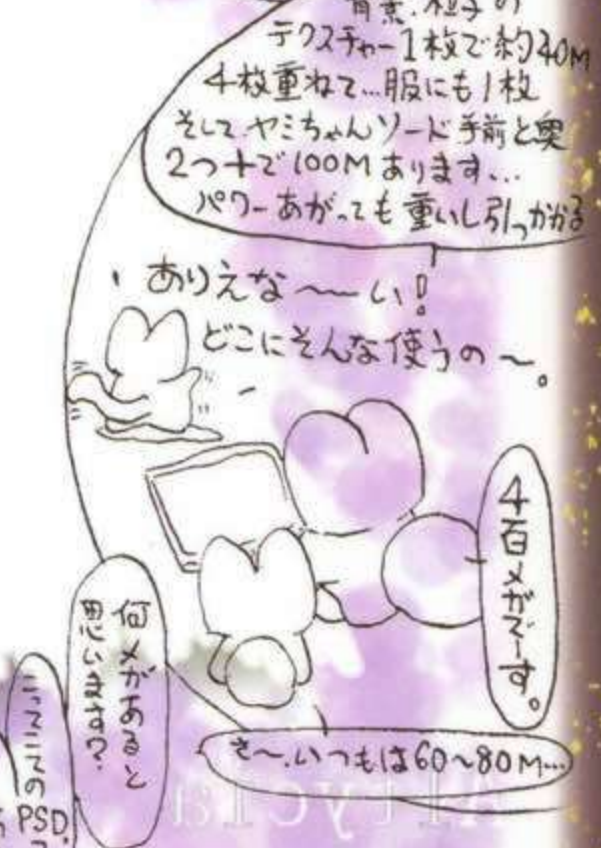 背景.粒子の
テクスチャー1枚で約40M
4枚重ねて…服にも1枚
そしてヤミちゃんソード手前と奥
2つ+で100Mあります…
パワーあがっても重いし引っかかる
ありえな〜〜い!
どこにそんな使うの〜。
4百メガでーす。
何メガあると
思います?
え〜.いつもは60〜80M…
PSD